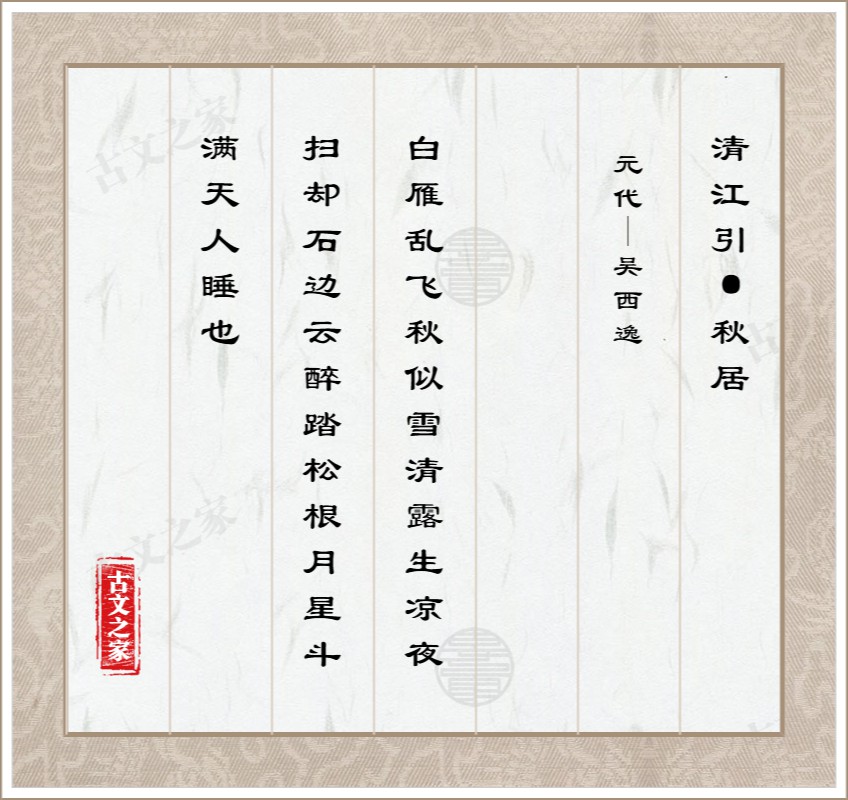 清江引●秋居
元代—吴西逸
白雁乱飞秋似雪清露生凉夜
扫却石边云醉踏松根月星斗
满天人睡也
古文之家
古文之家
古文之家